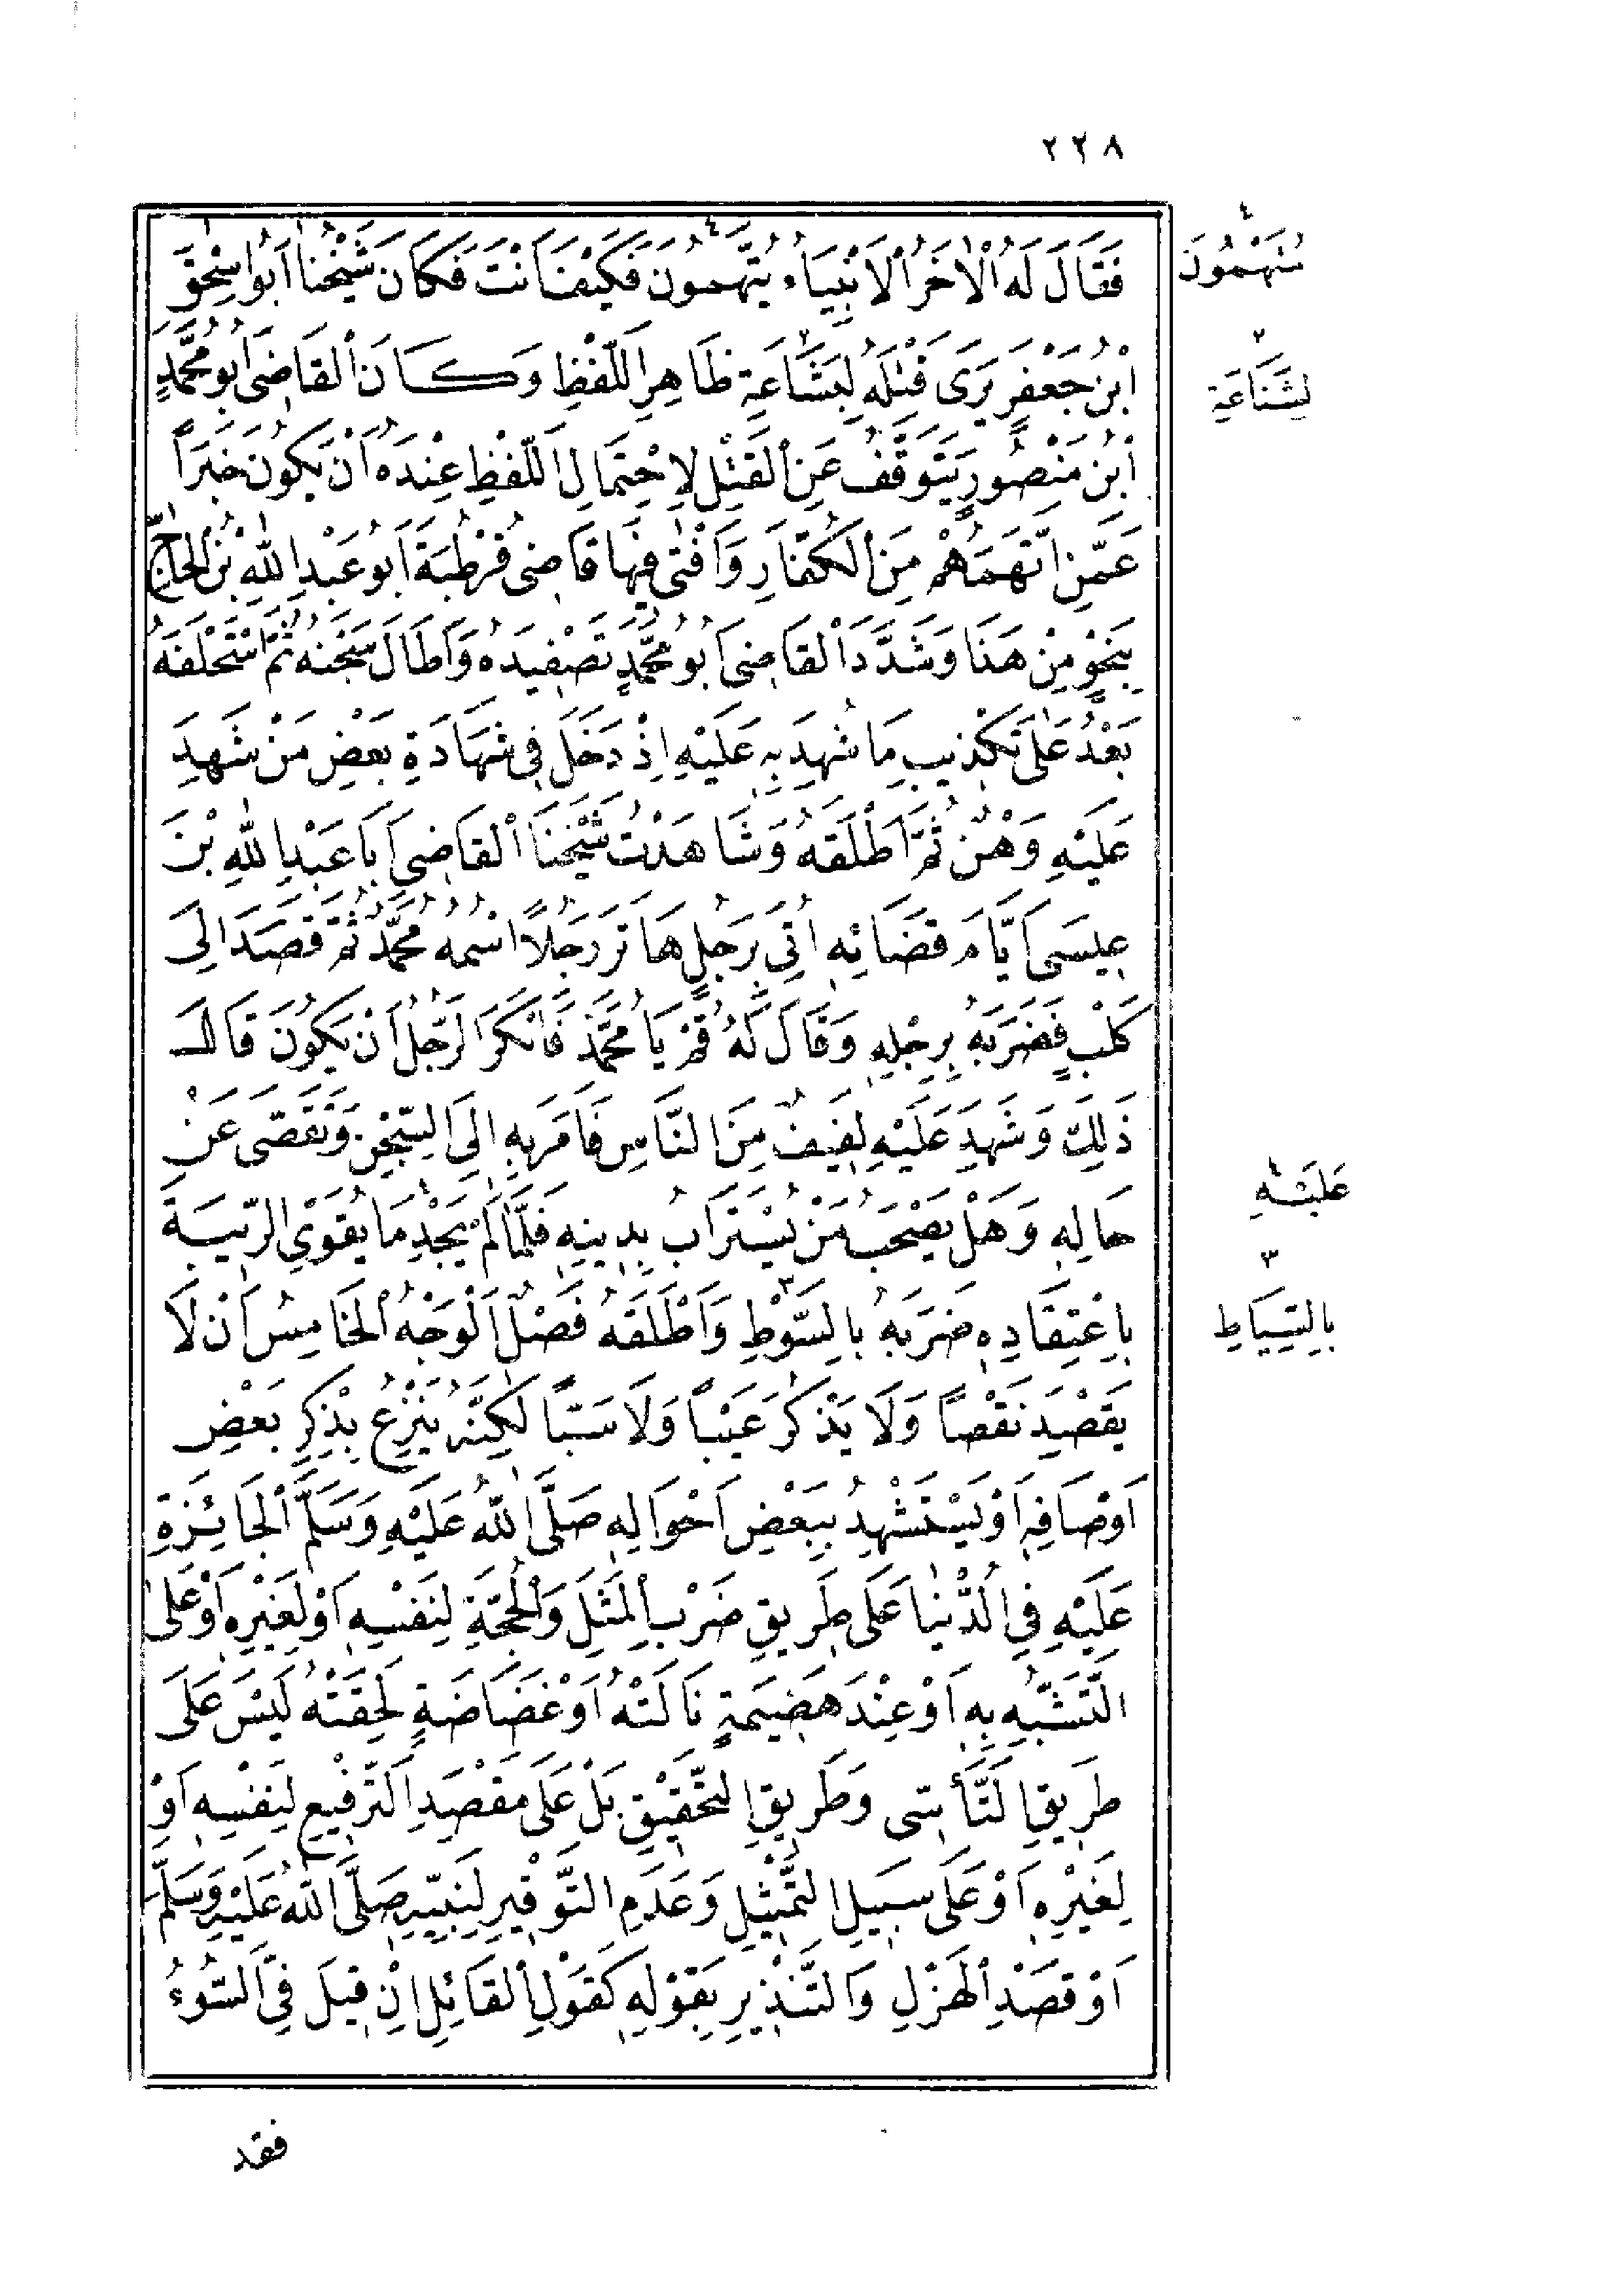 ٢٢٨
فَقَالَ لَهُ الْآخَرُ الْأَنْبِيَاءُ يُتَّهَمُونَ فَكَيْفَ أَنْتَ فَكَانَ شَيْخُنَا أَبُو إِسْحٰقَ
ابْنُ جَعْفَرٍ يَرَى قَتْلَهُ لِبَشَاعَةِ ظَاهِرِ اللَّفْظِ وَكَانَ الْقَاضِى أَبُو مُحَمَّدِ
ابْنُ مَنْصُورٍ يَتَوَقَّفُ عَنِ الْقَتْلِ لِاحْتِمَالِ اللَّفْظِ عِنْدَهُ أَنْ يَكُونَ خَبَرًا
عَمَّنِ اتَّهَمَهُمْ مِنَ الْكُفَّارِ وَأَفْتٰى فِيهَا قَاضِى قُرْطُبَةَ أَبُو عَبْدِ اللّٰهِ بْنُ الْحَاجِّ
بِنَحْوٍ مِنْ هَذَا وَشَدَّدَ الْقَاضِى أَبُو مُحَمَّدٍ تَصْفِيدَهُ وَأَطَالَ سَجْنَهُ ثُمَّ اسْتَحْلَفَهُ
بَعْدُ عَلَى تَكْذِيبِ مَا شُهِدَ بِهِ عَلَيْهِ إِذْ دَخَلَ فِى شَهَادَةِ بَعْضِ مَنْ شَهِدَ
عَلَيْهِ وَهْنٌ ثُمَّ أَطْلَقَهُ وَشَاهَدْتُ شَيْخَنَا الْقَاضِىَ أَبَا عَبْدِ اللّٰهِ بْنَ
عِيسَى أَيَّامَ قَضَائِهِ أُتِىَ بِرَجُلٍ هَاتَرَ رَجُلًا اسْمُهُ مُحَمَّدٌ ثُمَّ قَصَدَ إِلَى
كَلْبٍ فَضَرَبَهُ بِرِجْلِهِ وَقَالَ لَهُ قُمْ يَا مُحَمَّدُ فَأَنْكَرَ الرَّجُلُ أَنْ يَكُونَ قَالَ
ذَلِكَ وَشَهِدَ عَلَيْهِ لَفِيفٌ مِنَ النَّاسِ فَأَمَرَ بِهِ إِلَى السِّجْنِ وَتَقَصَّى عَنْ
حَالِهِ وَهَلْ يَصْحَبُ مَنْ يُسْتَرَابُ بِدِينِهِ فَلَمَّا لَمْ يَجِدْ مَا يُقَوِّى الرِّيبَةَ
بِاعْتِقَادِهِ ضَرَبَهُ بِالسَّوْطِ وَأَطْلَقَهُ فَصْلٌ الْوَجْهُ الْخَامِسُ أَنْ لَا
يَقْصِدَ نَقْصًا وَلَا يَذْكُرَ عَيْبًا وَلَا سَبًّا لَكِنَّهُ يَنْزِعُ بِذِكْرِ بَعْضِ
أَوْصَافِهِ أَوْ يَسْتَشْهِدُ بِبَعْضِ أَحْوَالِهِ صَلَّى اللّٰهُ عَلَيْهِ وَسَلَّمَ الْجَائِزَةِ
عَلَيْهِ فِى الدُّنْيَا عَلَى طَرِيقِ ضَرْبِ الْمَثَلِ وَالْحُجَّةِ لِنَفْسِهِ أَوْ لِغَيْرِهِ أَوْ عَلَى
التَّشَبُّهِ بِهِ أَوْ عِنْدَ هَضِيمَةٍ نَالَتْهُ أَوْ غَضَاضَةٍ لَحِقَتْهُ لَيْسَ عَلَى
طَرِيقِ التَّأَسِّى وَطَرِيقِ التَّحْقِيقِ بَلْ عَلَى مَقْصَدِ التَّرْفِيعِ لِنَفْسِهِ أَوْ
لِغَيْرِهِ أَوْ عَلَى سَبِيلِ التَّمْثِيلِ وَعَدَمِ التَّوْقِيرِ لِنَبِيِّهِ صَلَّى اللّٰهُ عَلَيْهِ وَسَلَّمَ
أَوْ قَصْدِ الْهَزْلِ وَالتَّنْذِيرِ بِقَوْلِهِ كَقَوْلِ الْقَائِلِ إِنْ قِيلَ فِىَّ السُّوءُ
فقد
٤
مُتَّهَمُونَ
٢
لِشَنَاعَةِ
عَلَيْهِ
٣
بِالسِّيَاطِ